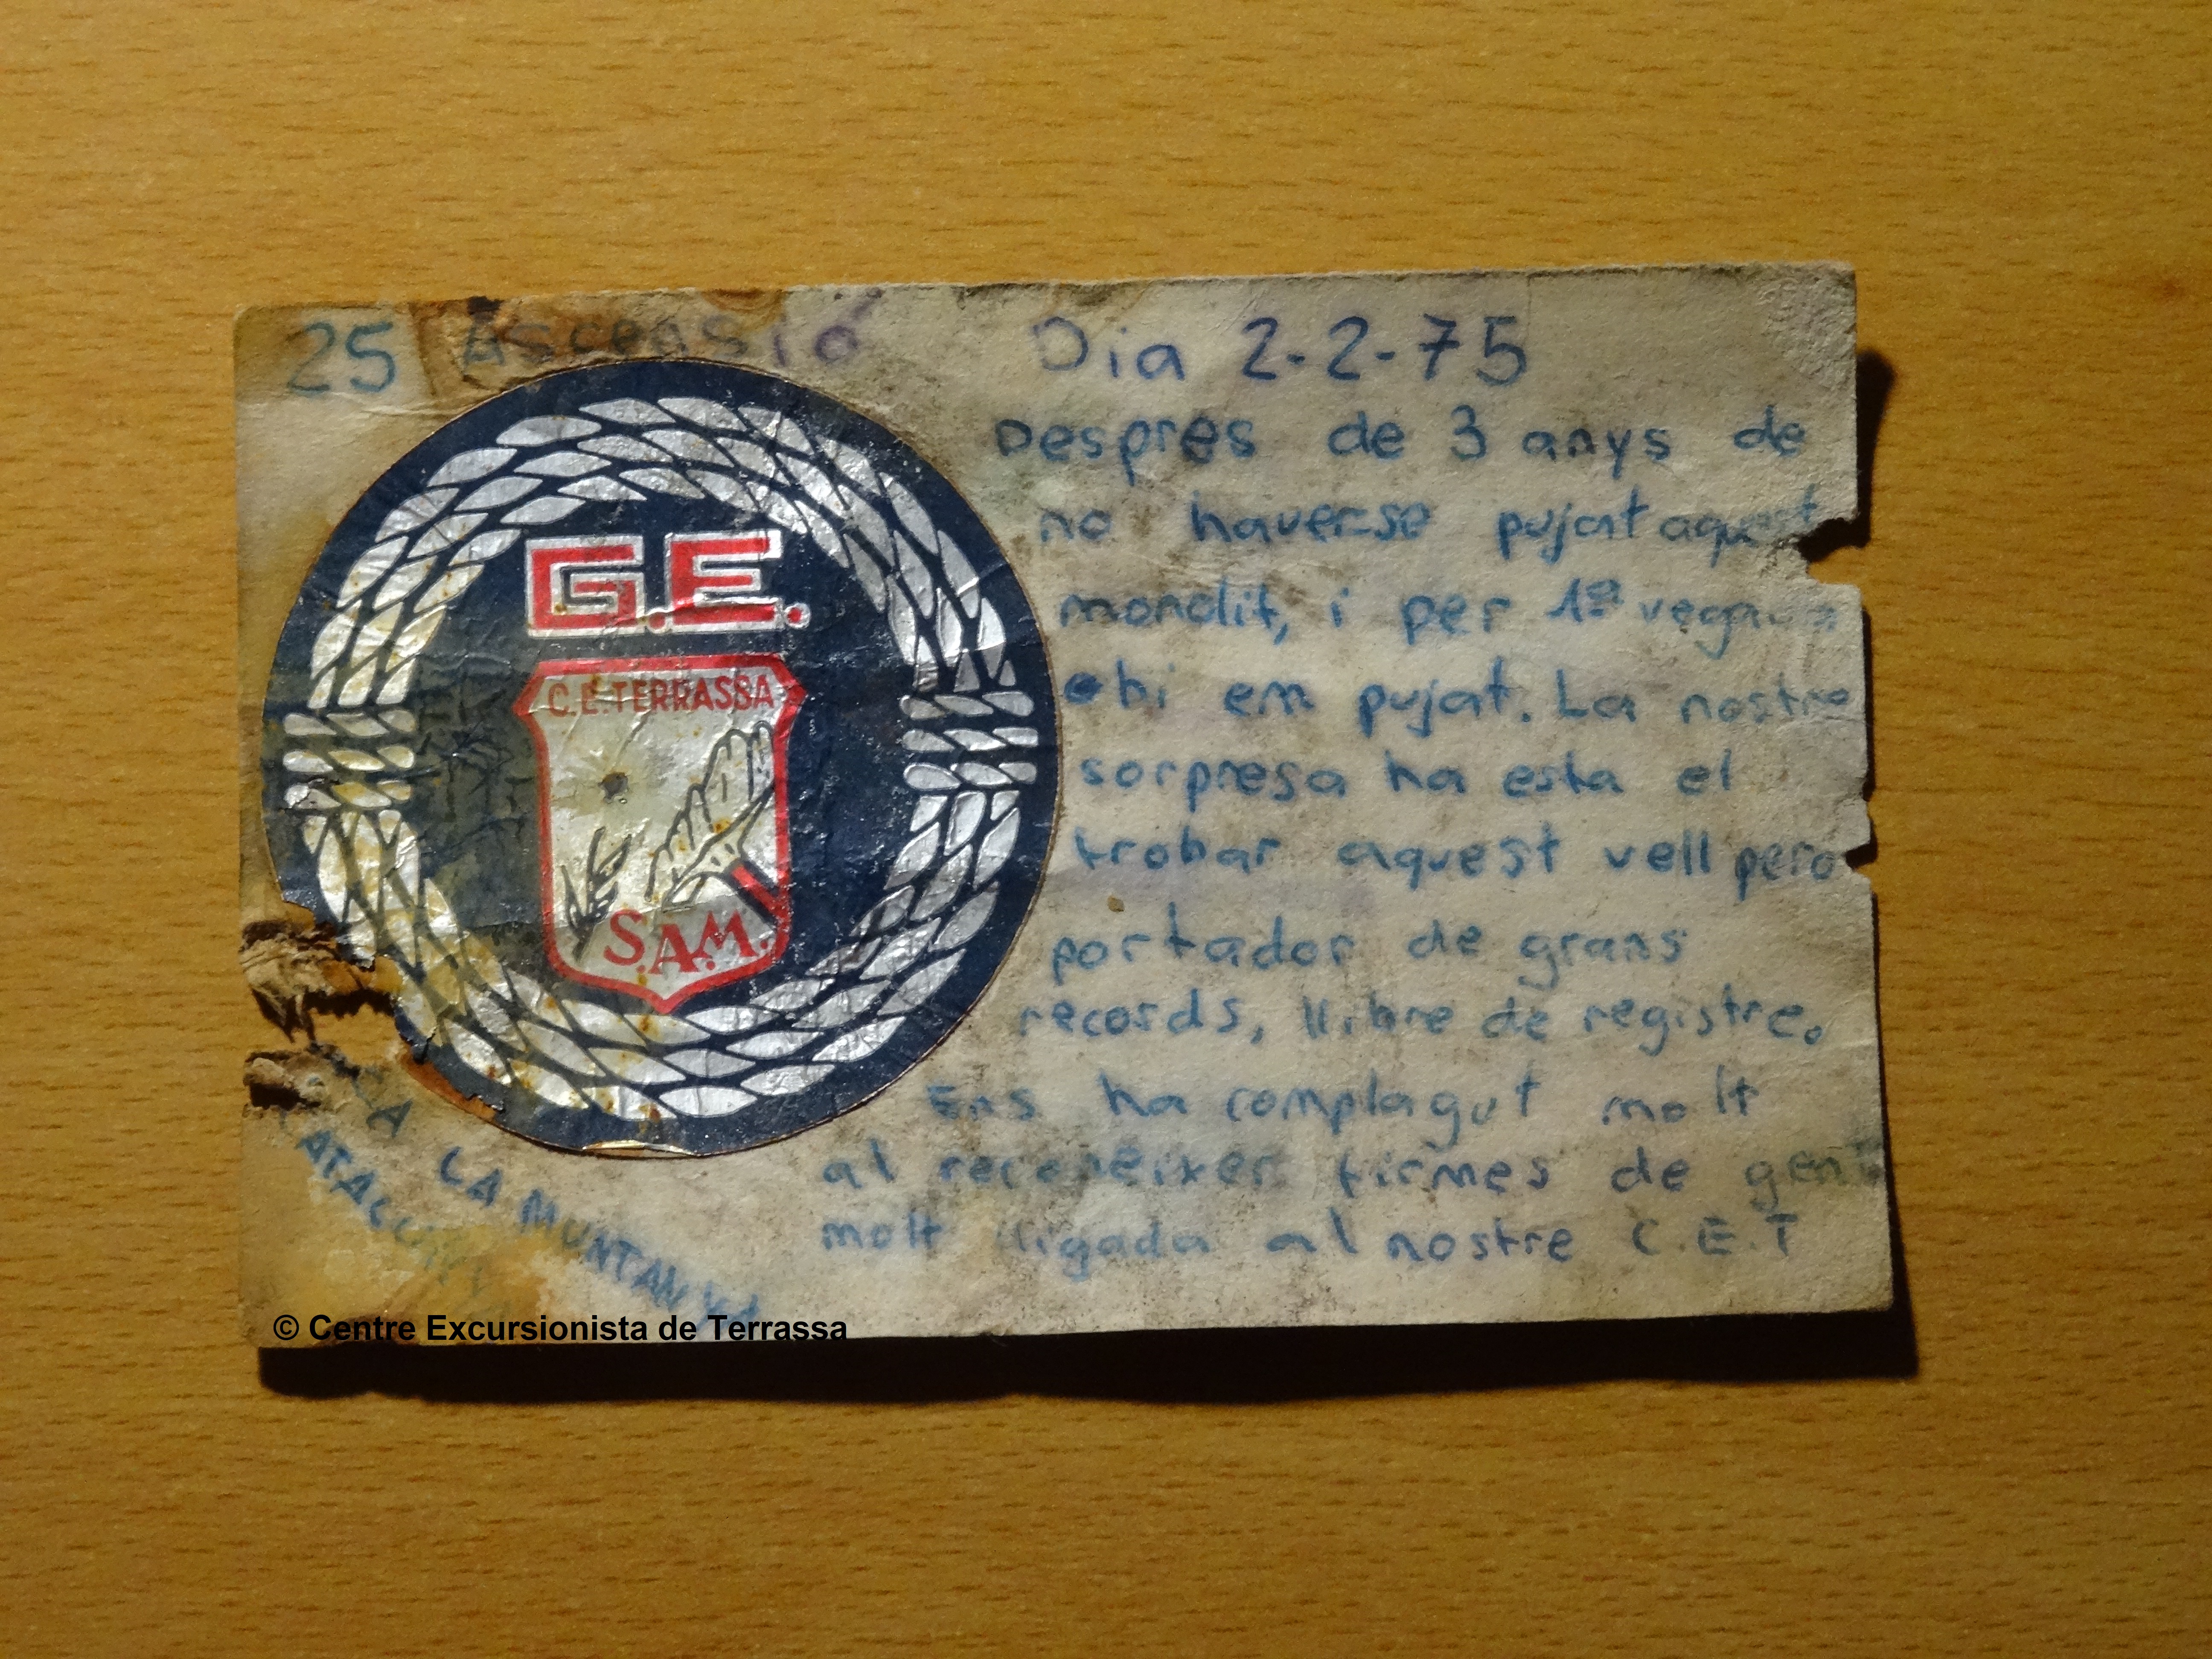 25 Ascensió Dia 2-2-75
Despres de 3 anys de
no haver-se pujat aquest
monolit, i per 1ª vegada
ohi em pujat. La nostre
sorpresa ha esta el
trobar aquest vell pero
portador de grans
records, llibre de registre.
Ens ha complagut molt
al reconeixer firmes de gent
molt lligada al nostre C.E.T
G.E.
C.E. TERRASSA
S.A.M.
LA MUNTANYA
© Centre Excursionista de Terrassa